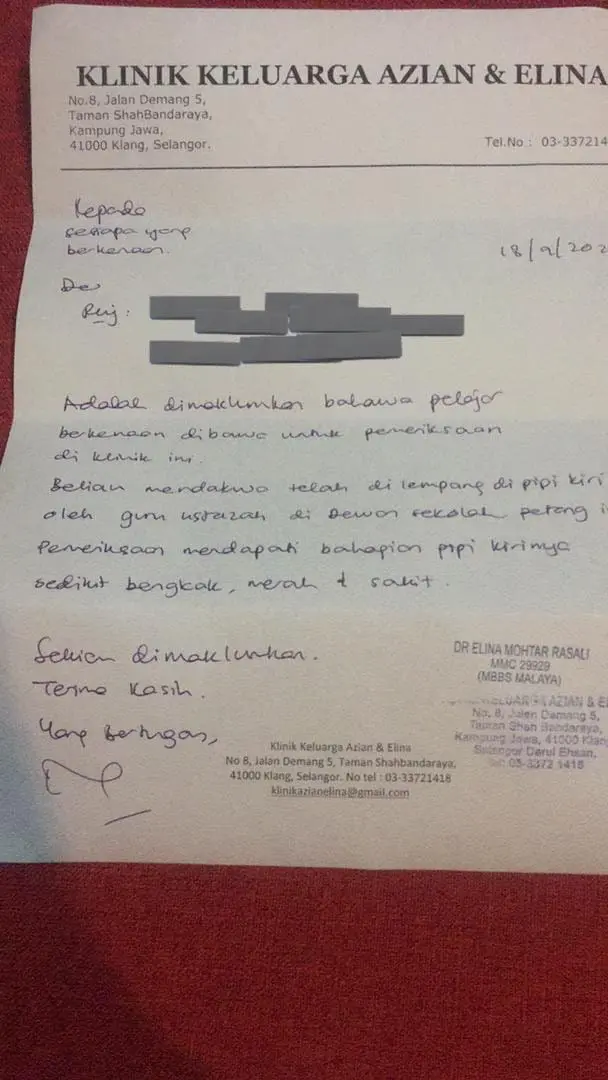 KLINIK KELUARGA AZIAN & ELINA
No.8, Jalan Demang 5,
Taman ShahBandaraya,
Kampung Jawa,
41000 Klang, Selangor.
Tel.No : 03-337214
Kepada
sesiapa yang
berkenaan.
18/9/202
Re
Adalah dimaklumkan bahawa pelajar
berkenaan dibawa untuk pemeriksaan
di klinik ini.
Beliau mendakwa telah di lempang di pipi kiri
oleh guru ustazah di Dewan sekolah petang i
Pemeriksaan mendapati bahagian pipi kirinya
sedikit bengkak, merah & sakit.
Sekian dimaklumkan.
Terima Kasih.
Yang Bertugas,
DR ELINA MOHTAR RASALI
MMC 29929
(MBBS MALAYA)
KELUARGA AZIAN & EL
No. 8, Jalan Demang 5,
Taman Shah Bandaraya,
Kampung Jawa, 41000 Klang
Selangor Darul Ehsan,
Tel: 03-3372 1418
Klinik Keluarga Azian & Elina
No 8, Jalan Demang 5, Taman Shahbandaraya,
41000 Klang, Selangor. No tel : 03-33721418
klinikazianelina@gmail.com